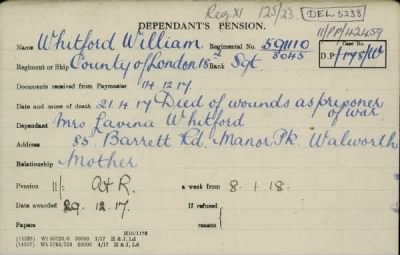 Reg. XI 125/23. DEL 5238
DEPENDANT'S PENSION. 11/PP/42459
Name Whitford William Regimental No. 591110 Case No.
Regiment or Ship County of London 18th Rank Sgt 3045 D.P. 1/178/W
Documents received from Paymaster 14 12 17
Date and cause of death 21.4.17 Died of wounds as prisoner of war
Dependant Mrs Lavina Whitford
Address 85. Barrett Rd. Manor Pk. Walworth
Relationship Mother
Pension 11/s A & R. a week from 8.1.18.
Date awarded 29.12.17. If refused
Papers reason
H16/1179
(11239) Wt 50720/6 50000 1/17 H & J, Ld
Wt 50000 4/17 H & J, Ld